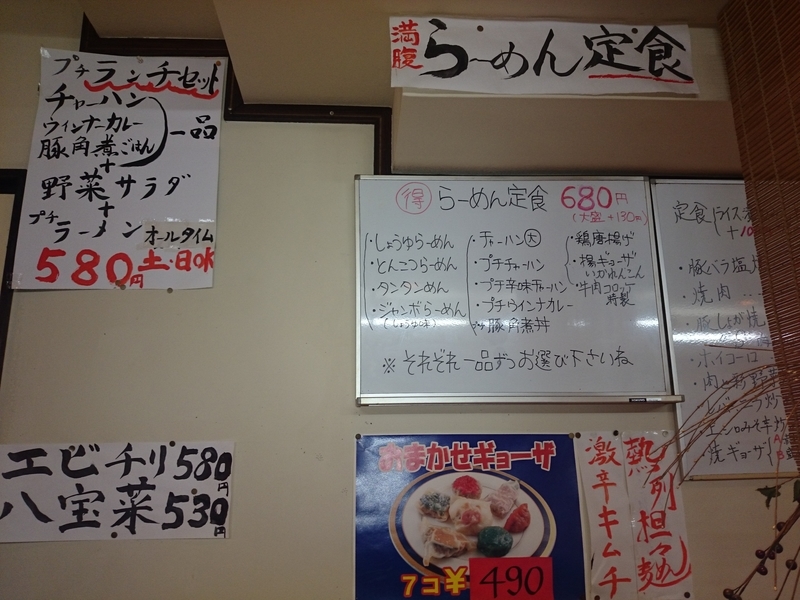 プチランチセット
チャーハン
ウィンナーカレー
豚角煮ごはん
一品
+
野菜サラダ
+
プチラーメン
オールタイム
580円 土・日OK
エビチリ 580円
八宝菜 530円
満腹
らーめん定食
得 らーめん定食 680円
(大盛+130円)
・しょうゆらーめん
・とんこつらーめん
・タンタンめん
・ジャンボらーめん
(しょうゆ味)
・チャーハン大
・プチチャーハン
・プチ辛味チャーハン
・プチウインナカレー
豚角煮丼
・鶏唐揚げ
・揚ギョーザ
いかれんこん
・牛肉コロッケ
特製
※それぞれ一品ずつお選び下さいね
定食(ライス
・豚バラ塩
・焼肉
・豚しょが焼
・ホイコーロ
・焼ギョーザ
おまかせギョーザ
7コ¥490
激辛キムチ
熱烈担々麺